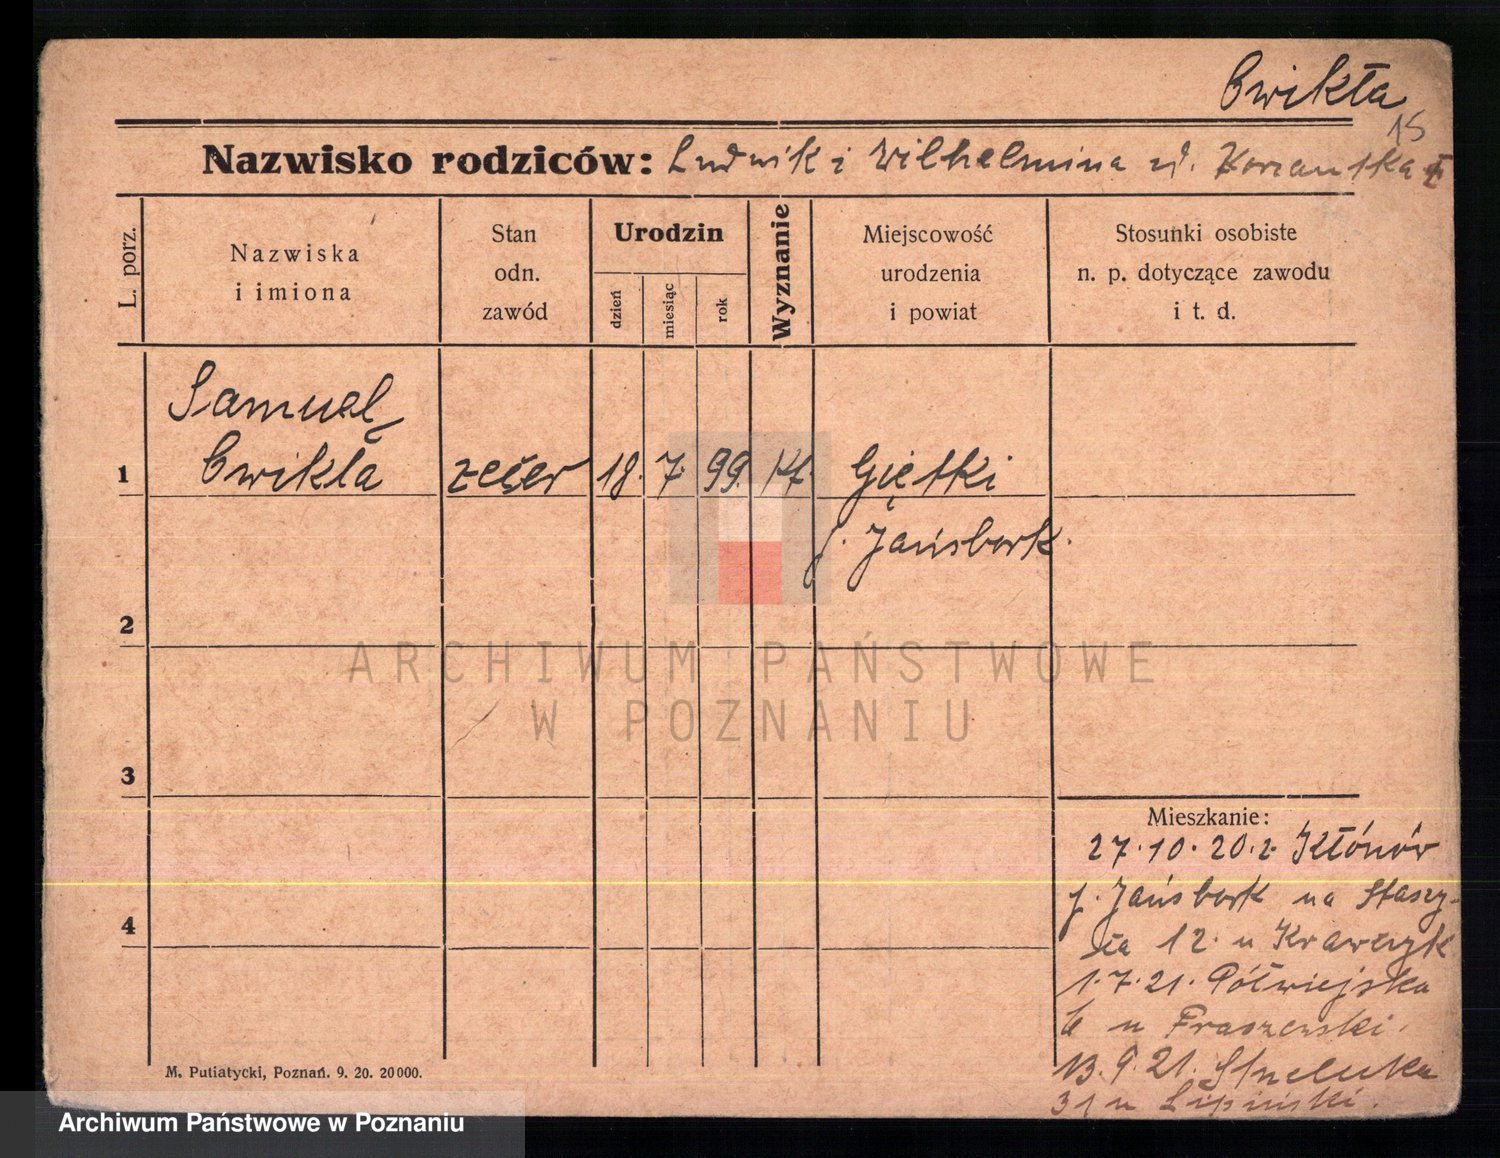 Cwikła
15
Nazwisko rodziców: Ludwik i Wilhelmina
L. porz.
Nazwiska
i imiona
Stan
odn.
zawód
Urodzin
dzień
miesiąc
rok
Wyznanie
Miejscowość
urodzenia
i powiat
Stosunki osobiste
n. p. dotyczące zawodu
i t. d.
Samuel
1 Cwikła zecer 18. 7. 99. Giętki
p. Jańsbork.
2
ARCHIWUM PAŃSTWOWE
W POZNANIU
3
Mieszkanie:
27.10.20. z Kłónór
p. Jańsbork na Staszy-
ca 12. u Krawczyk
4
1.7.21. Półwiejska
6 u Fraszewski.
13.9.21. Strzelecka
31 u Lipiński.
M. Putiatycki, Poznań. 9. 20. 20000.
Archiwum Państwowe w Poznaniu